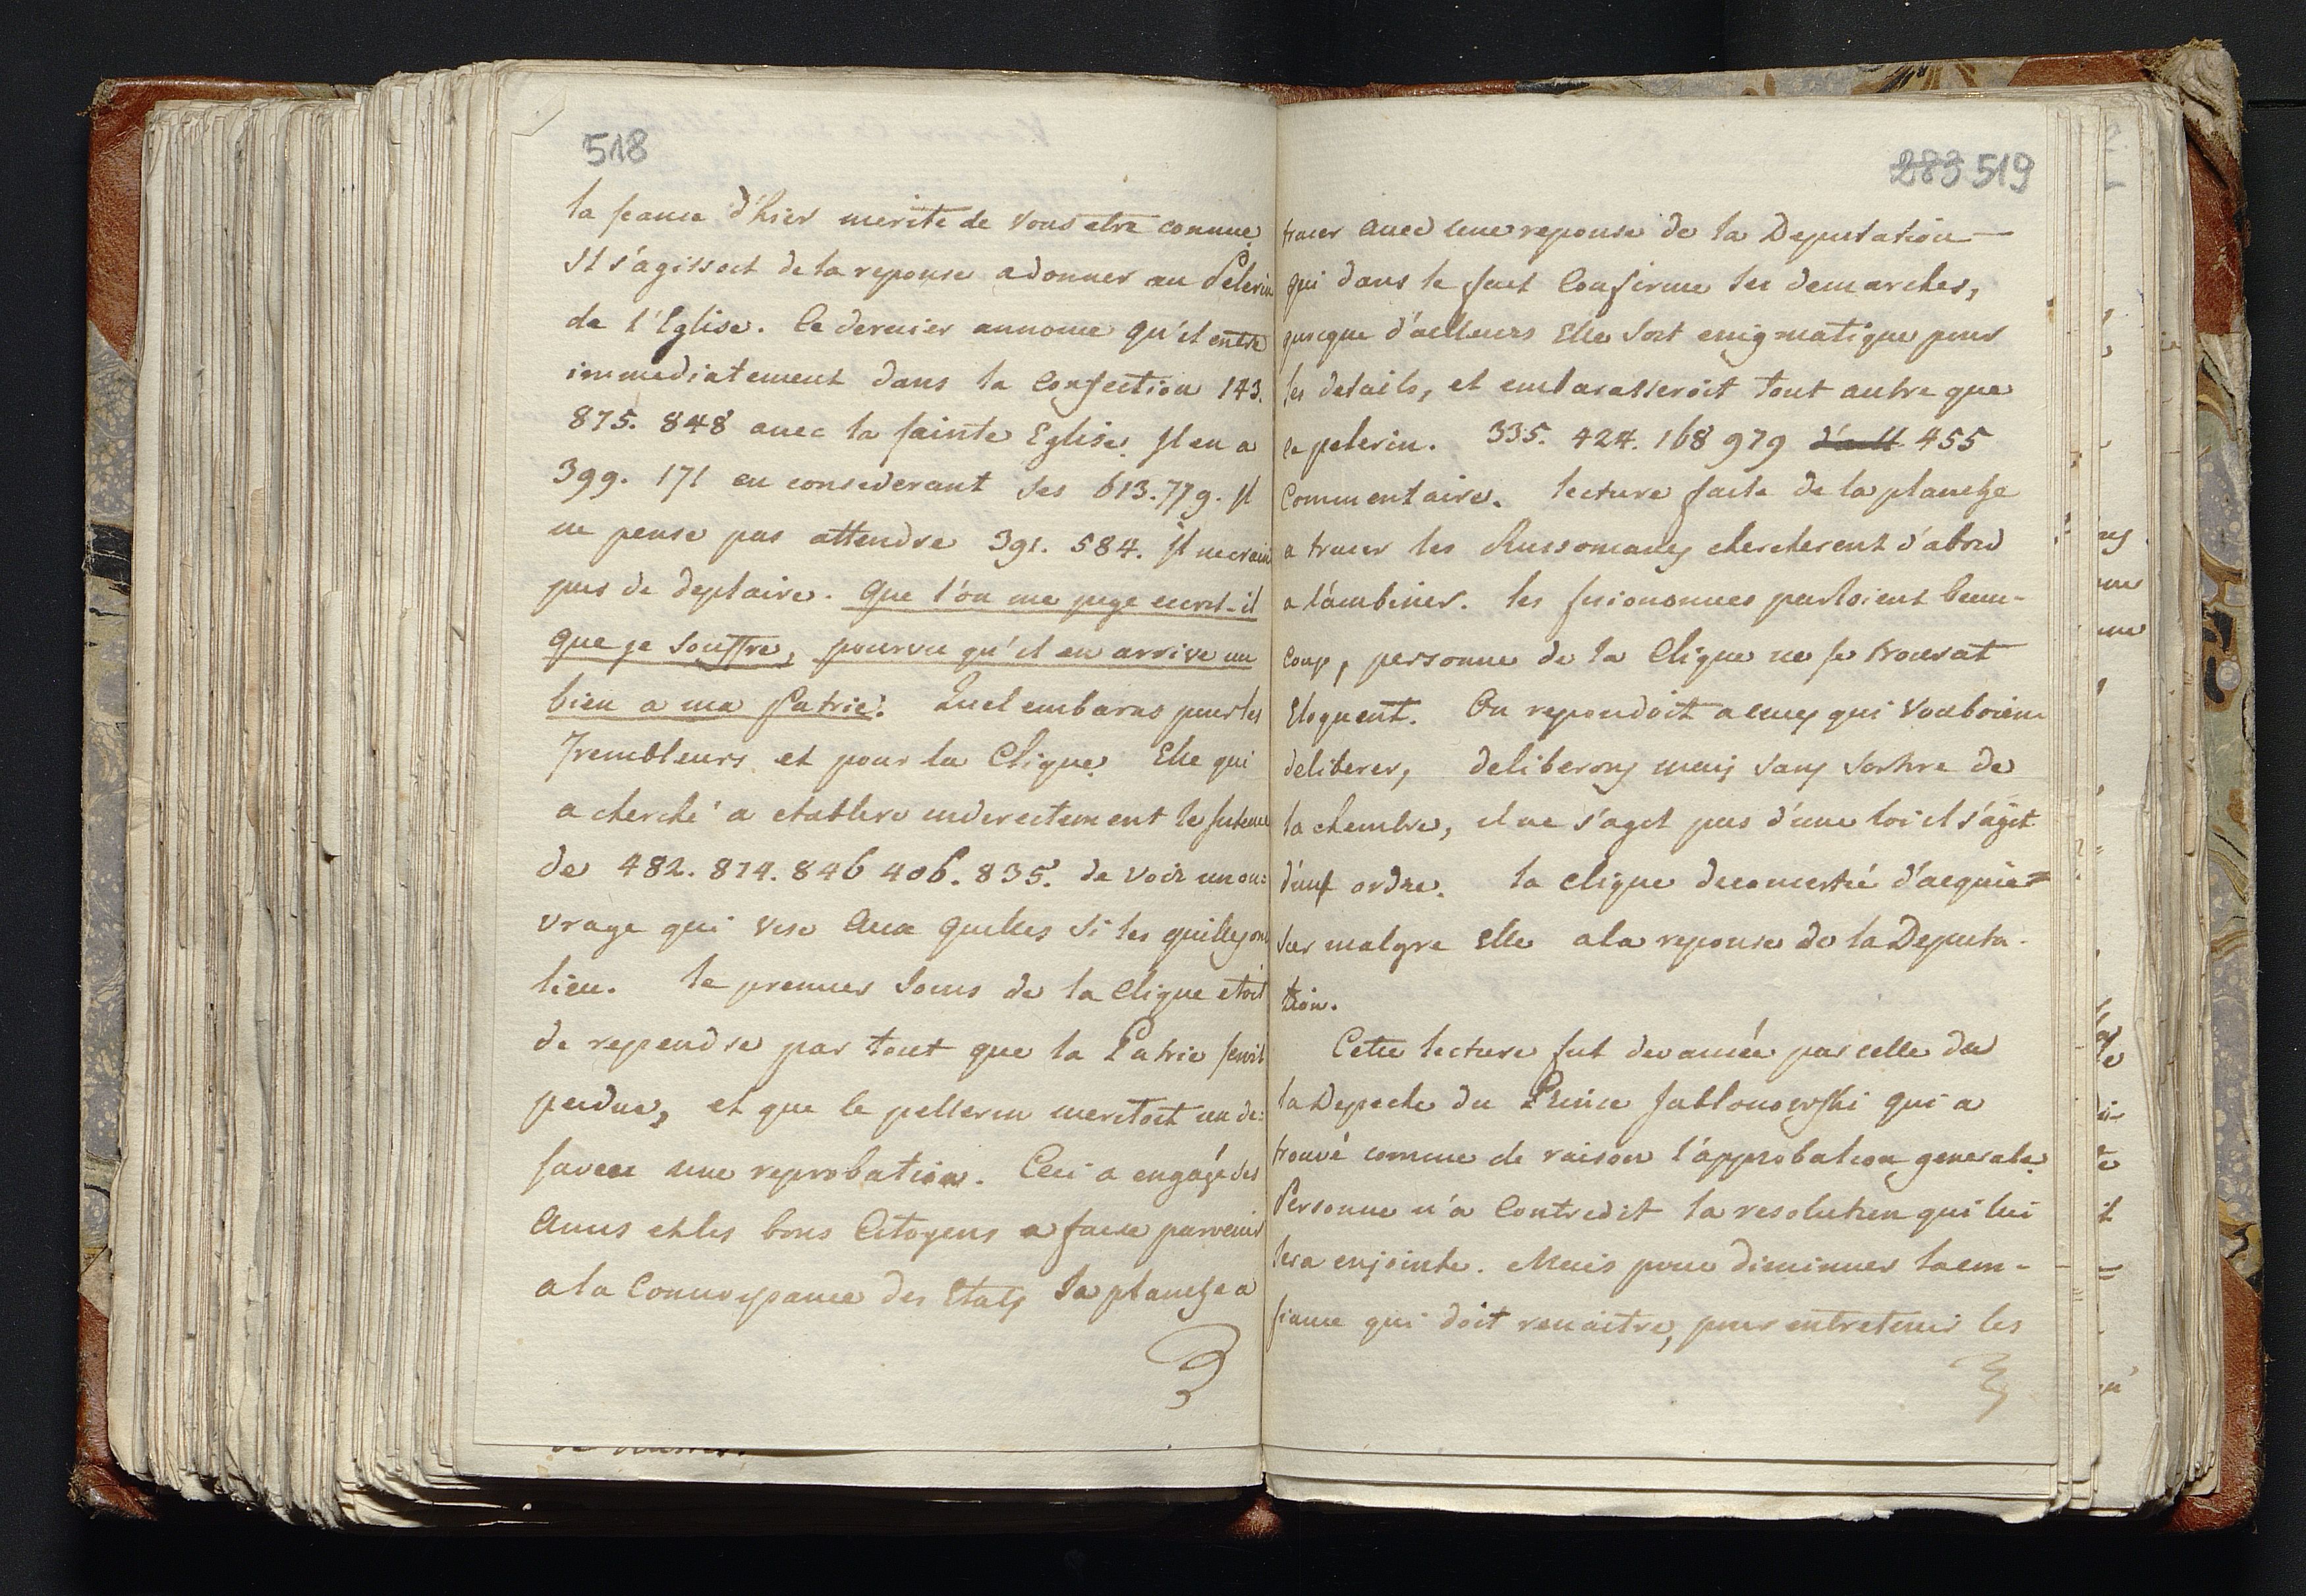 518
la seance d'hier merite de vous etre connue.
Il s'agissoit de la reponse a donner au Pelerin
de l'Eglise. Ce dernier annonce qu'il entre
immediatement dans la Confection 143.
875. 848 avec la sainte Eglise. Il en a
399. 171 en considerant ses 613. 779. Il
ne pense pas attendre 391. 584. Il ne craint
pas de deplaire. Que l'on me juge ecrit-il
que je souffre, pourvu qu'il en arrive un
bien a ma Patrie. Quel embaras pour les
Trembleurs et pour la Clique. Elle qui
a cherché a etablire inderectement le
de 482. 874. 846 406. 835. de voir un ou=
vrage qui vise aux quilles si les quilles ont
lieu. le premier soins de la clique etoit
de rependre par tout que la Patrie seroit
perdue, et que le pellerin meritoit un de=
saveu une reprobation. Ceci a engagé les
Amis et les bons Citoyens a faire parvenir
a la Connoissance des Etats la planche a
283 519
tracer avec une reponse de la Deputation
qui dans le fait Confirme ses demarches,
quoique d'ailleurs Elle soit enigmatique pour
les details, et embarasseroit tout autre que
le pelerin. 335. 424. 168 979 d'aill 455
Commentaire. lecture faite de la planche
a tracer les Russomanes chercherent d'abord
a l'ambiner. les fisionomies parloient beau-
coup, personne de la Clique ne se trouvat
Eloquent. On repondoit a ceux qui vouloient
deliberer, deliberons mais sans sortire de
la chembre, il ne s'agit pas d'une loi il s'agit
d'un ordre. la clique deconcerté d'acquie=
ser malgre Elle a la reponse de la Deputa-
tion.
Cette lecture fut devancée par celle de
la Depeche du Prince Jablonowski qui a
trouvé comme de raison l'approbation generale.
Personne n'a Contredit la resolution qui lui
sera enjointe. Mais pour diminuer la con-
fiance qui doit renaitre, pour entretenir les